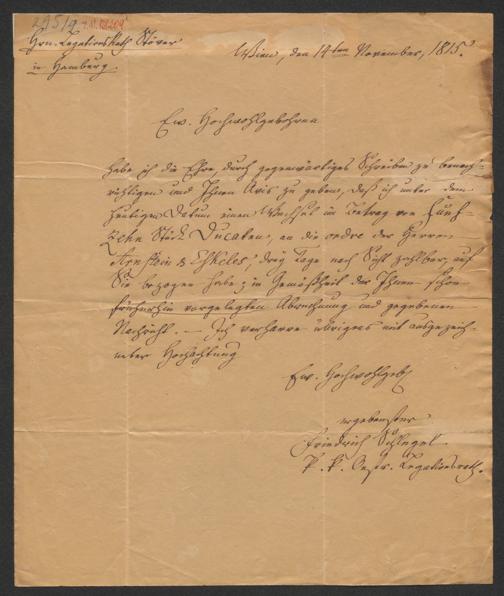 Hrn. Legations Rath Stöver
in Hamburg.
Wien, den 14ten November, 1815.
Ew. Hochwohlgebohren
habe ich die Ehre, durch gegenwärtiges Schreiben zu benach-
richtigen und Ihnen Avis zu geben, daß ich unter dem
heutigen Datum einen Wechsel im Betrag von Fünf-
zehn Stück Ducaten, an die ordre der Herren
Arnstein & Eskeles, drey Tage nach Sicht zahlbar, auf
Sie bezogen habe; in Gemäßheit der Ihnen schon
früherhin vorgelegten Abrechnung und gegebenen
Nachricht. — Ich verharre übrigens mit ausgezeich-
neter Hochachtung
Ew. Hochwohlgeb
ergebenster
Friedrich Schlegel.
K. K. Oestr. Legationsrath.